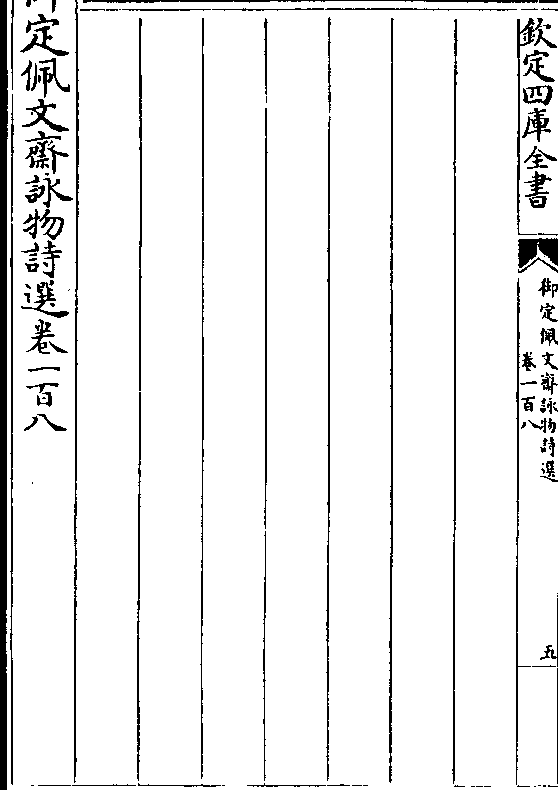 欽定四庫全書
御定佩文齋詠物詩選
卷一百八
五
御定佩文齋詠物詩選卷一百八